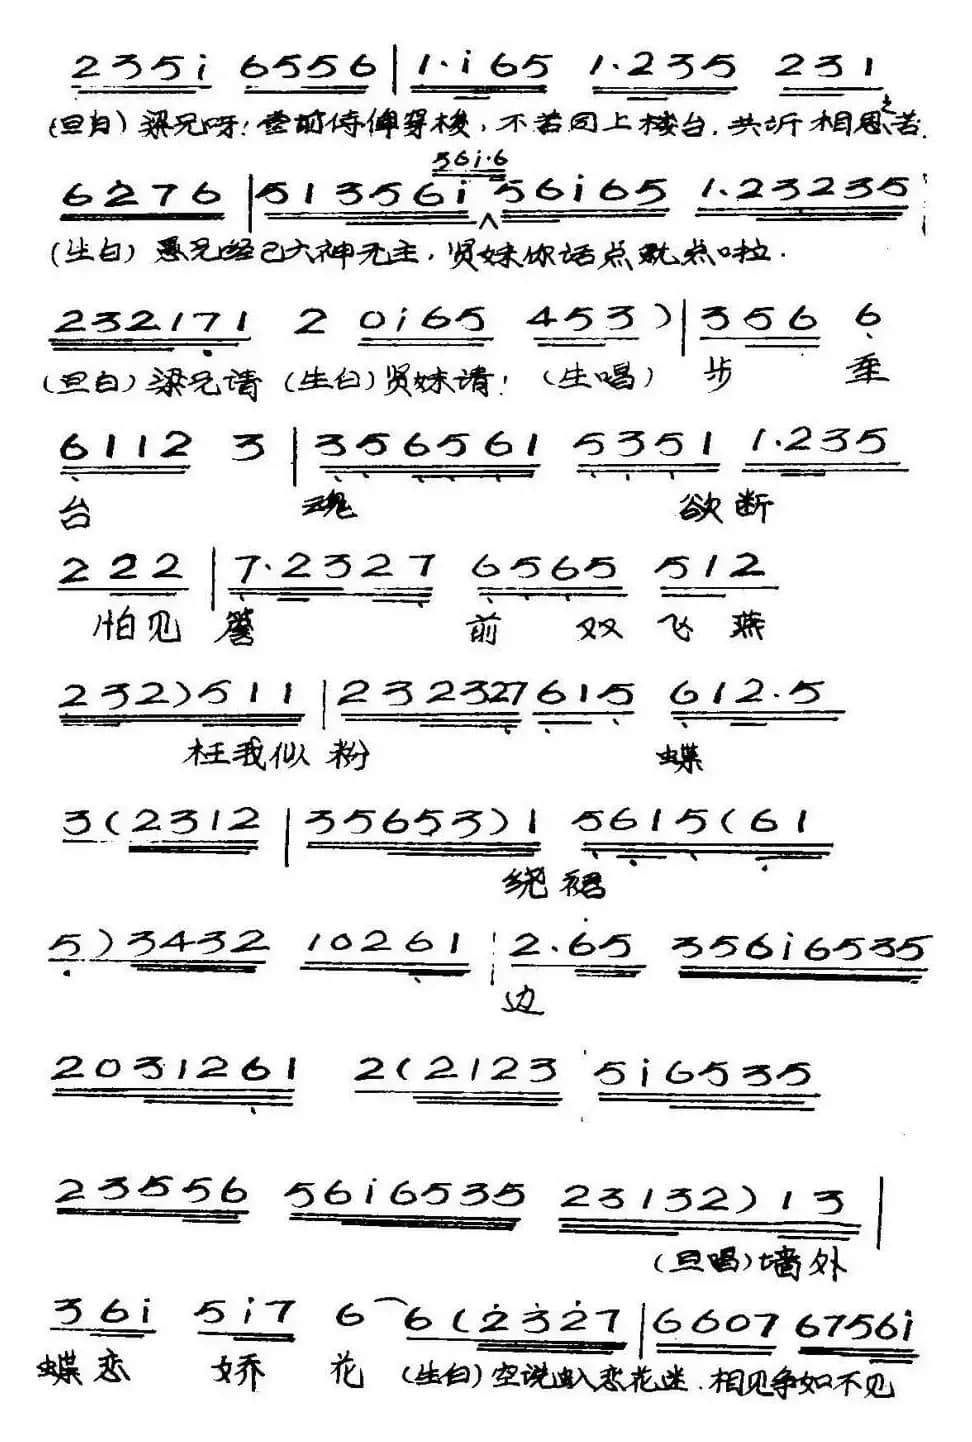 2 3 5 i 6 5 5 6 | 1 . i 6 5 1 . 2 3 5 2 3 1
(旦白) 梁兄呀！堂前侍俾穿梭，不若回上楼台，共诉相思之苦．
5 6 i . 6
6 2 7 6 | 5 1 3 5 6 i ^ 5 6 i 6 5 1 . 2 3 2 3 5 |
(生白) 愚兄经已六神无主，贤妹你话点就点啦．
2 3 2 1 7 1 2 0 i 6 5 4 5 3 ) | 3 5 6 6
(旦白) 梁兄请 (生白) 贤妹请！ (生唱) 步 垂
6 1 1 2 3 | 3 5 6 5 6 1 5 3 5 1 1 . 2 3 5
台 魂 欲断
2 2 2 | 7 . 2 3 2 7 6 5 6 5 5 1 2
怕见 簷 前 双 飞 燕
2 3 2 ) 5 1 1 | 2 3 2 3 2 7 6 1 5 6 1 2 . 5
枉我似 粉 蝶
3 ( 2 3 1 2 | 3 5 6 5 3 ) 1 5 6 1 5 ( 6 1
绕 裙
5 ) 3 4 3 2 1 0 2 6 1 | 2 . 6 5 3 5 6 i 6 5 3 5
边
2 0 3 1 2 6 1 2 ( 2 1 2 3 5 i 6 5 3 5
2 3 5 5 6 5 6 i 6 5 3 5 2 3 1 3 2 ) 1 3 |
(旦唱) 墙外
3 6 i 5 i 7 6 6 ( 2 3 2 7 | 6 6 0 7 6 7 5 6 i
蝶恋 娇 花 (生白) 空说恋花迷．相见争如不见